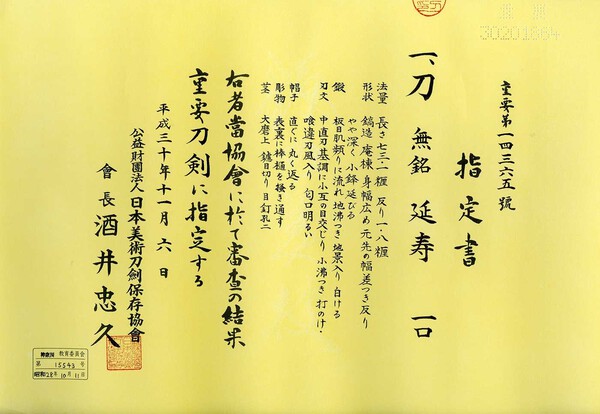 重要第一四三六五號
指定書
一、刀 無銘 延寿 一口
法量 長さ七三・二糎 反り一・八糎
形状 鎬造 庵棟 身幅広め 元先の幅差つき 反り
やや深く 小鋒延びる
鍛 板目肌頻りに流れ 地沸つき 地景入り 白ける
刃文 中直刃基調に小互の目交じり 小沸つき 打のけ・
喰違刃風入り 匂口明るい
帽子 直ぐに丸く返る
彫物 表裏に棒樋を掻き通す
茎 大磨上 鑢目切り 目釘孔二
右者當協會に於て審査の結果
重要刀剣に指定する
平成三十年十一月六日
公益財團法人日本美術刀劍保存協會
會長 酒井忠久
神奈川 教育委員会
第 15543 号
昭和28年10月11日
30201864